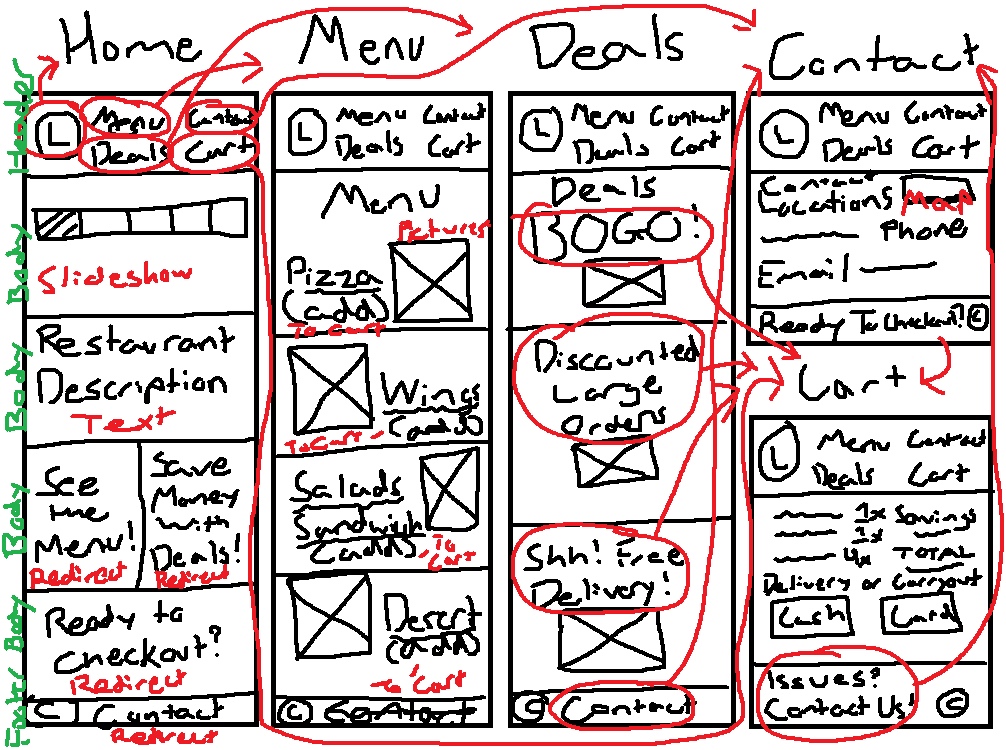 Home
Menu
Deals
Contact
Header
Body
Body
Body
Body
Footer
L
Menu
Contact
Deals
Cart
Slideshow
Restaurant
Description
Text
See
the
Menu!
Redirect
Save
Money
with
Deals!
Redirect
Ready to
checkout?
Redirect
C
Contact
Redirect
L
Menu Contact
Deals Cart
Menu
Pictures
Pizza
(add)
To Cart
Wings
(add)
To Cart
Salads
Sandwich
(add)
To
Cart
Desert
(add)
To Cart
C
Contact
L
Menu Contact
Deals Cart
Deals
BOGO!
Discounted
Large
Orders
Shh! Free
Delivery!
C
Contact
L
Menu Contact
Deals Cart
Contact
Locations
Map
Phone
Email
Ready To Checkout? C
Cart
L
Menu Contact
Deals Cart
1x Savings
1x
4x TOTAL
Delivery or Carryout
Cash
Card
Issues?
Contact Us!
C